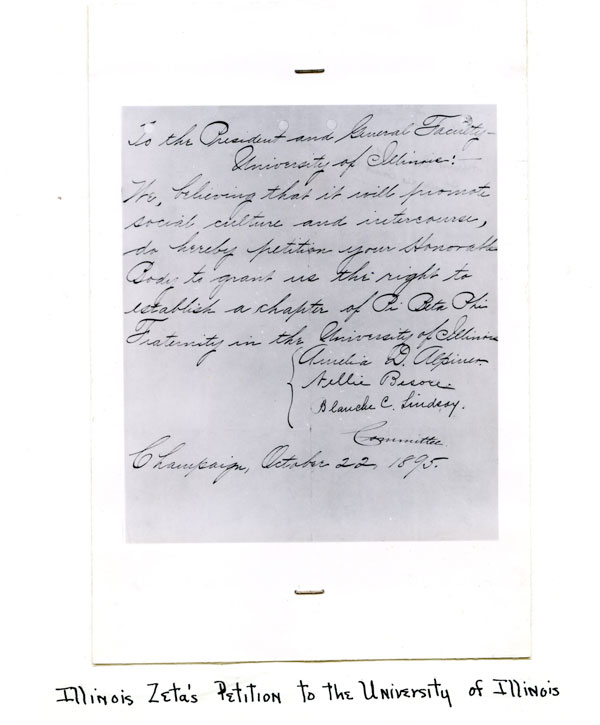 To the President and General Faculty—
University of Illinois:—
We, believing that it will promote
social, culture and intercourse,
do hereby petition your Honorable
Body to grant us the right to
establish a chapter of Pi Beta Phi
Fraternity in the University of Illinois
Amelia D. Alpiner.
Nellie Besore.
Blanche C. Lindsay.
Committee
Champaign, October 22, 1895.
Illinois Zeta's Petition to the University of Illinois